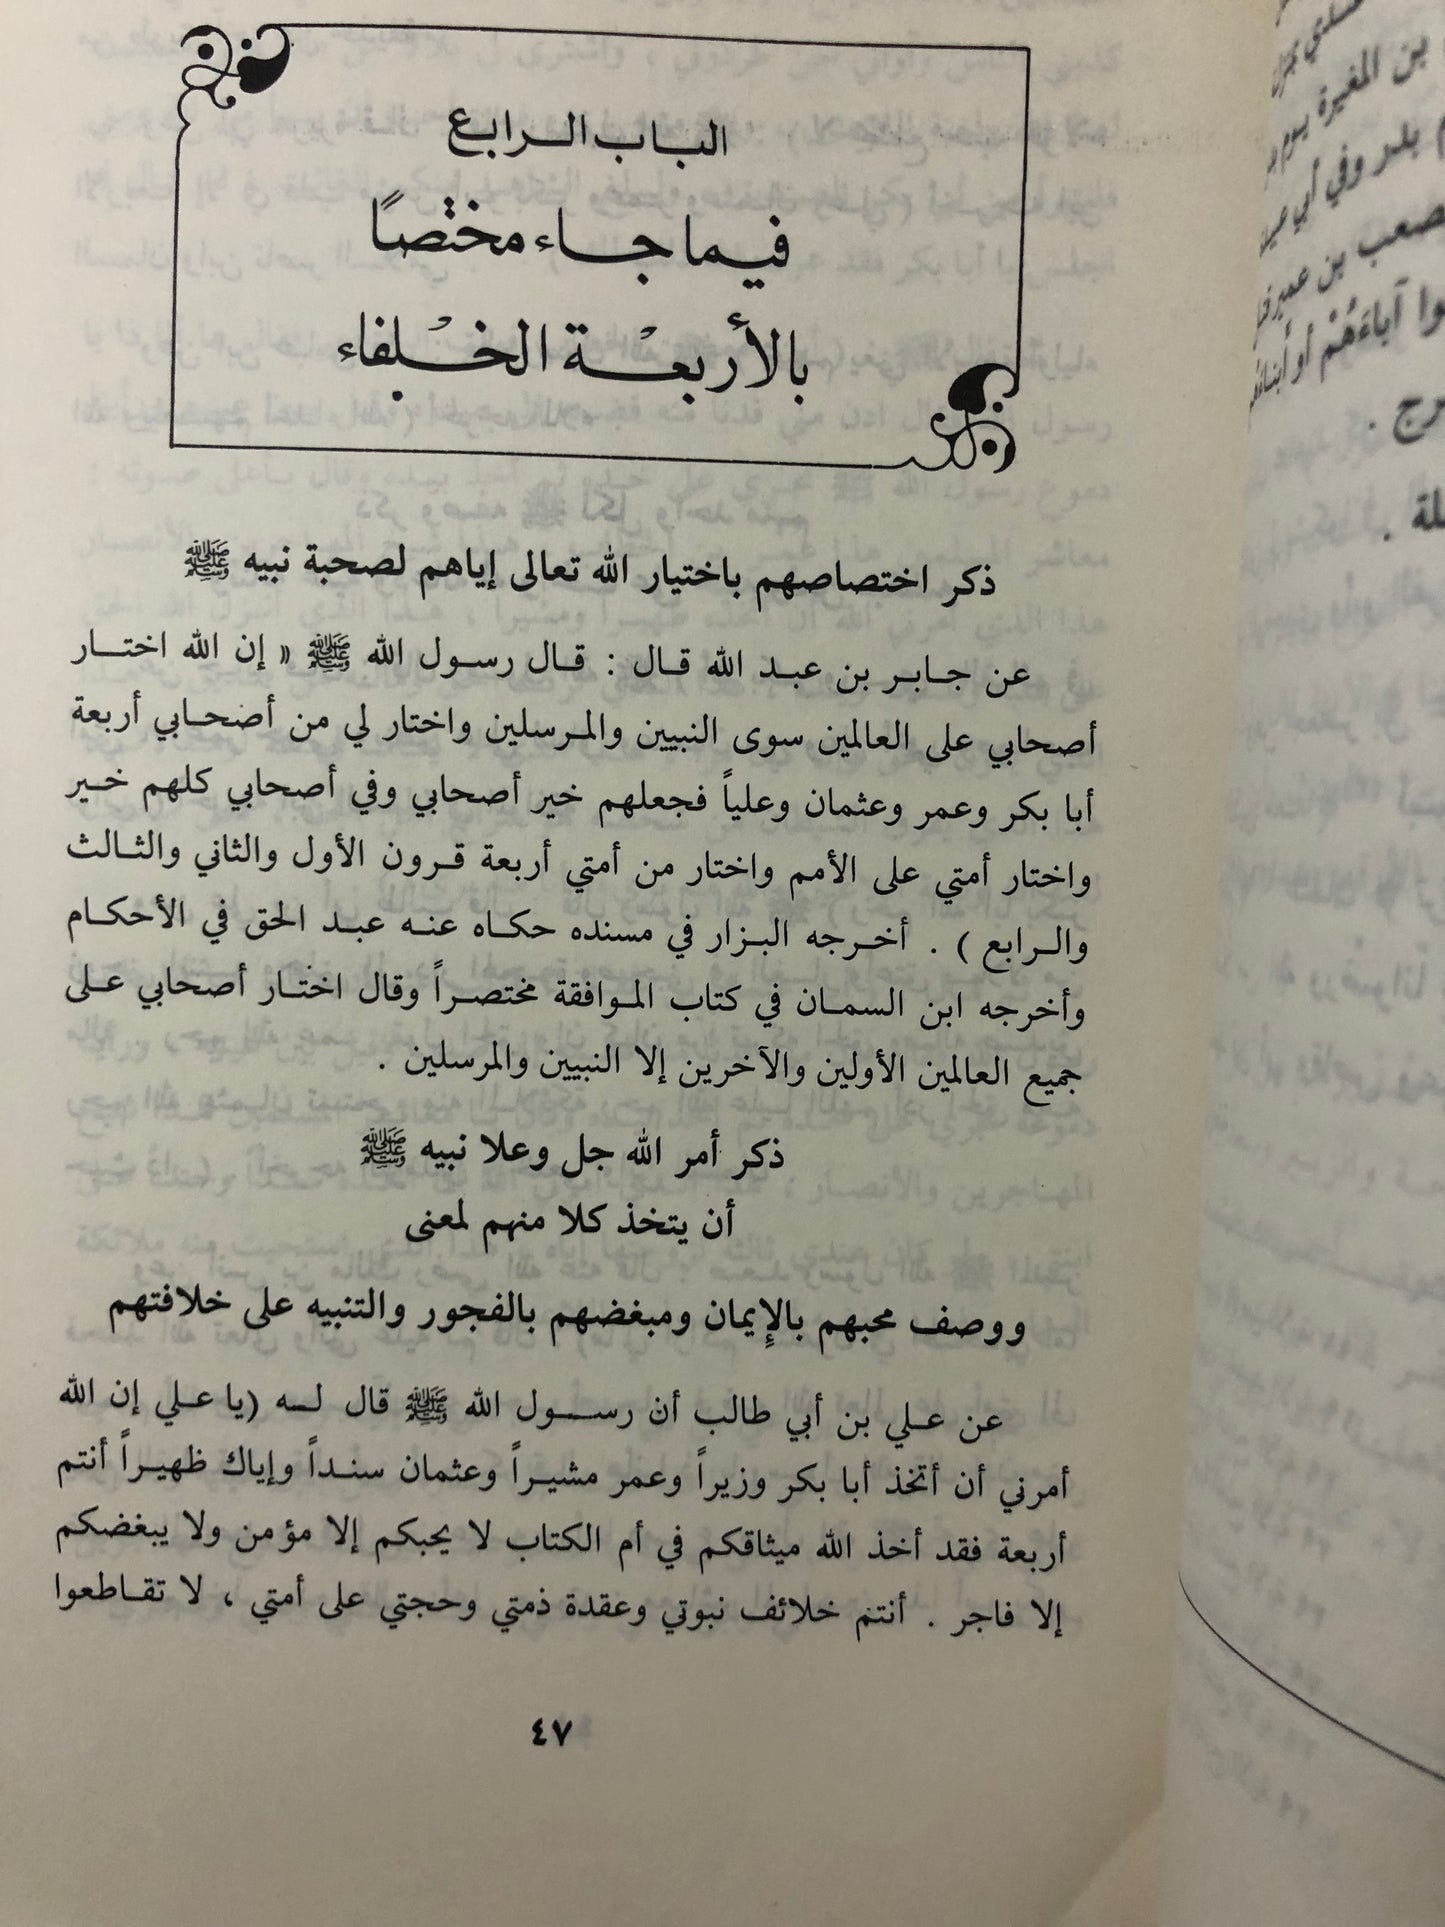 الباب الرابع
فيما جاء مختصًا
بالأربعة الخلفاء
ذكر اختصاصهم باختيار الله تعالى إياهم لصحبة نبيه ﷺ
عن جابر بن عبد الله قال : قال رسول الله ﷺ « إن الله اختار
أصحابي على العالمين سوى النبيين والمرسلين واختار لي من أصحابي أربعة
أبا بكر وعمر وعثمان وعلياً فجعلهم خير أصحابي وفي أصحابي كلهم خير
واختار أمتي على الأمم واختار من أمتي أربعة قرون الأول والثاني والثالث
والرابع ) . أخرجه البزار في مسنده حكاه عنه عبد الحق في الأحكام
وأخرجه ابن السمان في كتاب الموافقة مختصراً وقال اختار أصحابي على
جميع العالمين الأولين والآخرين إلا النبيين والمرسلين .
ذكر أمر الله جل وعلا نبيه ﷺ
أن يتخذ كلا منهم لمعنى
ووصف محبهم بالإيمان ومبغضهم بالفجور والتنبيه على خلافتهم
عن علي بن أبي طالب أن رسول الله ﷺ قال له (يا علي إن الله
أمرني أن أتخذ أبا بكر وزيراً وعمر مشيراً وعثمان سنداً وإياك ظهيراً أنتم
أربعة فقد أخذ الله ميثاقكم في أم الكتاب لا يحبكم إلا مؤمن ولا يبغضكم
إلا فاجر . أنتم خلائف نبوتي وعقدة ذمتي وحجتي على أمتي ، لا تقاطعوا
٤٧
بن المغيرة يوم
بدر وفي أبي
صعب بن عمير
آباءهم أو أبناءهم